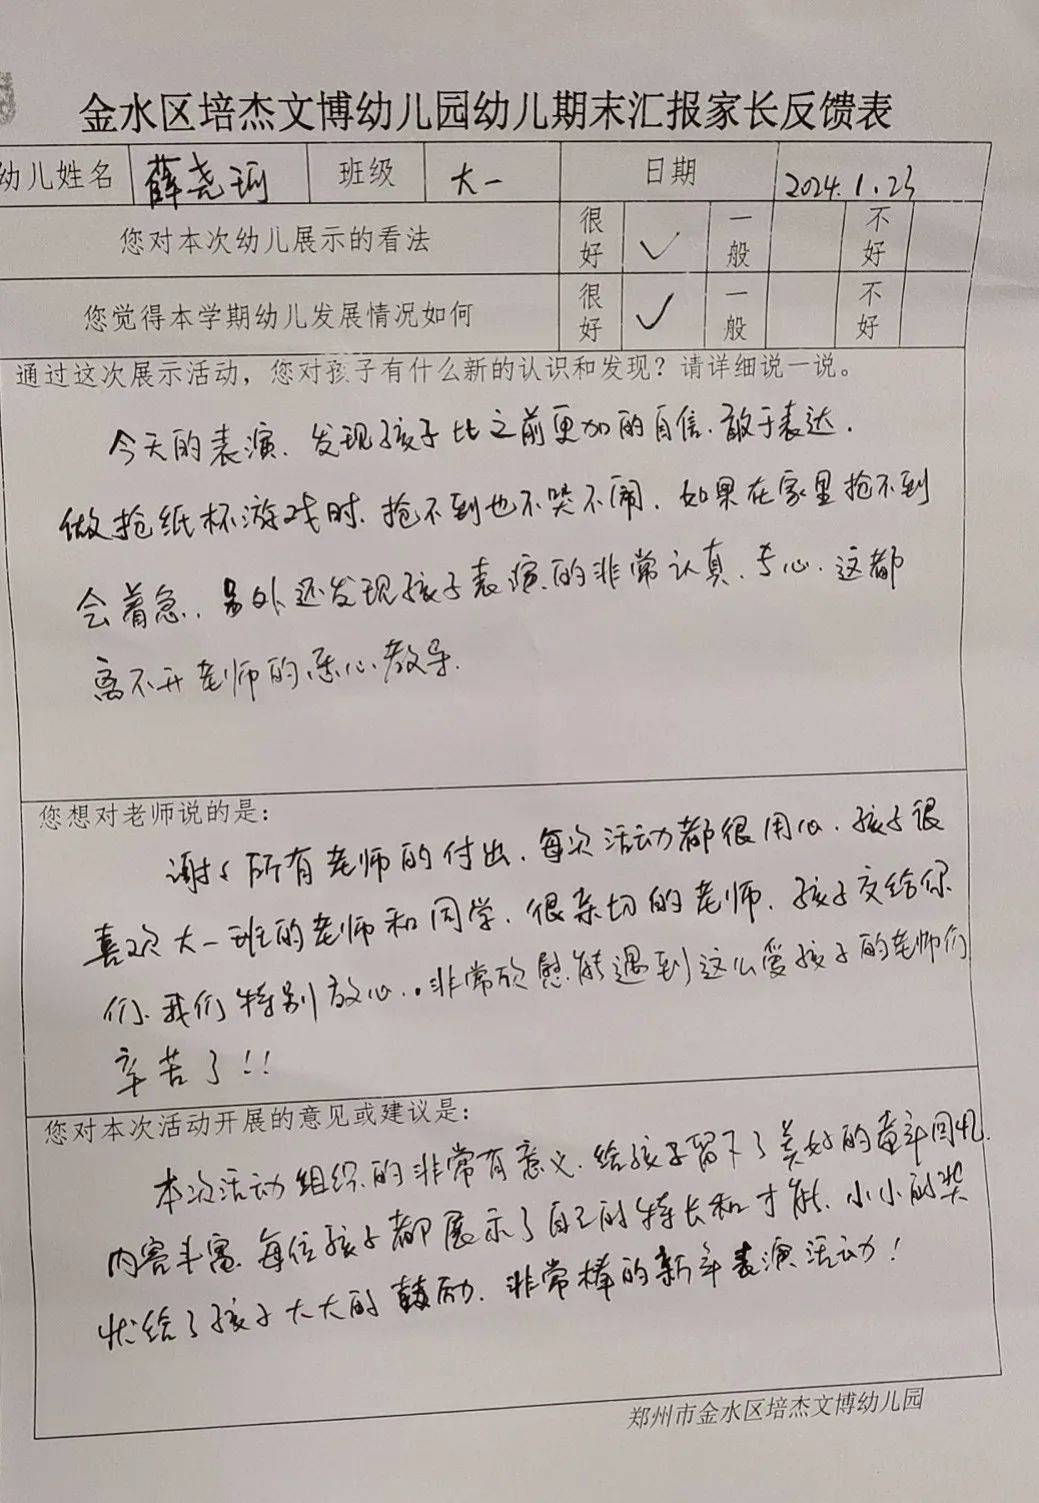 金水区培杰文博幼儿园幼儿期末汇报家长反馈表
幼儿姓名 薛尧珂 班级 大一 日期 2024.1.23
您对本次幼儿展示的看法 很好 ✓ 一般 不好
您觉得本学期幼儿发展情况如何 很好 ✓ 一般 不好
通过这次展示活动，您对孩子有什么新的认识和发现？请详细说一说。
今天的表演、发现孩子比之前更加的自信、敢于表达.
做抢纸杯游戏时、抢不到也不哭不闹、如果在家里抢不到
会着急、另外还发现孩子表演的非常认真、专心、这都
离不开老师的悉心教导.
您想对老师说的是：
谢谢所有老师的付出、每次活动都很用心、孩子很
喜欢大一班的老师和同学、很亲切的老师、孩子交给你
们、我们特别放心..非常欣慰能遇到这么爱孩子的老师们
辛苦了!!
您对本次活动开展的意见或建议是：
本次活动组织的非常有意义、给孩子留下了美好的童年回忆.
内容丰富、每位孩子都展示了自己的特长和才能、小小的奖
状给了孩子大大的鼓励、非常棒的新年表演活动!
郑州市金水区培杰文博幼儿园